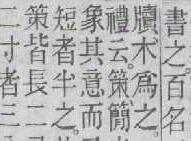 書之百名
牘木爲之
禮云策簡
象其意而
短者半之
策皆長二
二寸者三